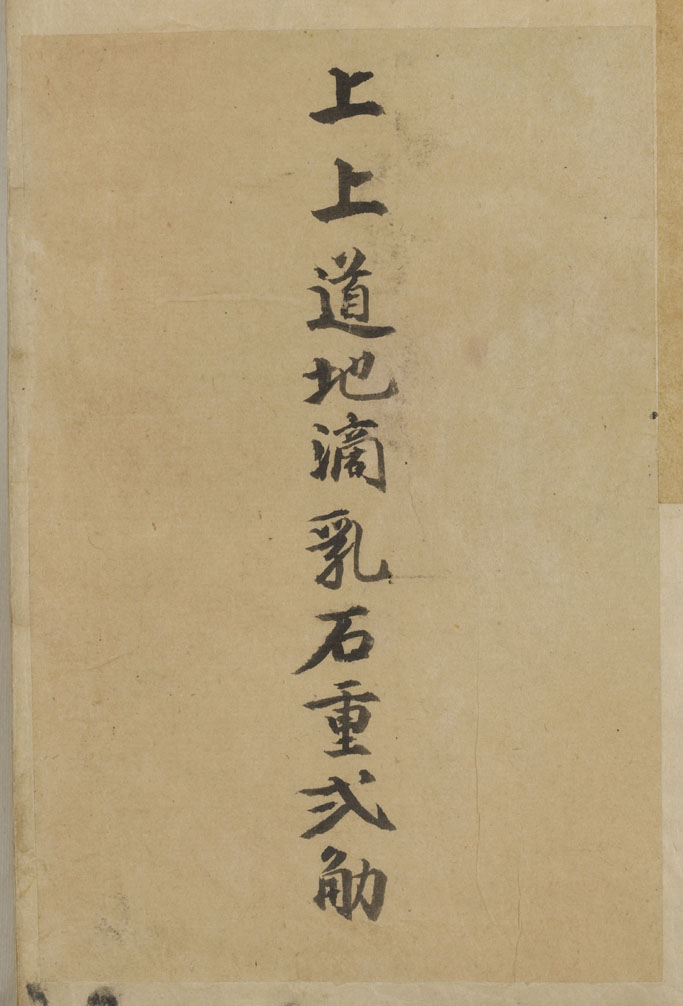 上上道地滴乳石重弍觔